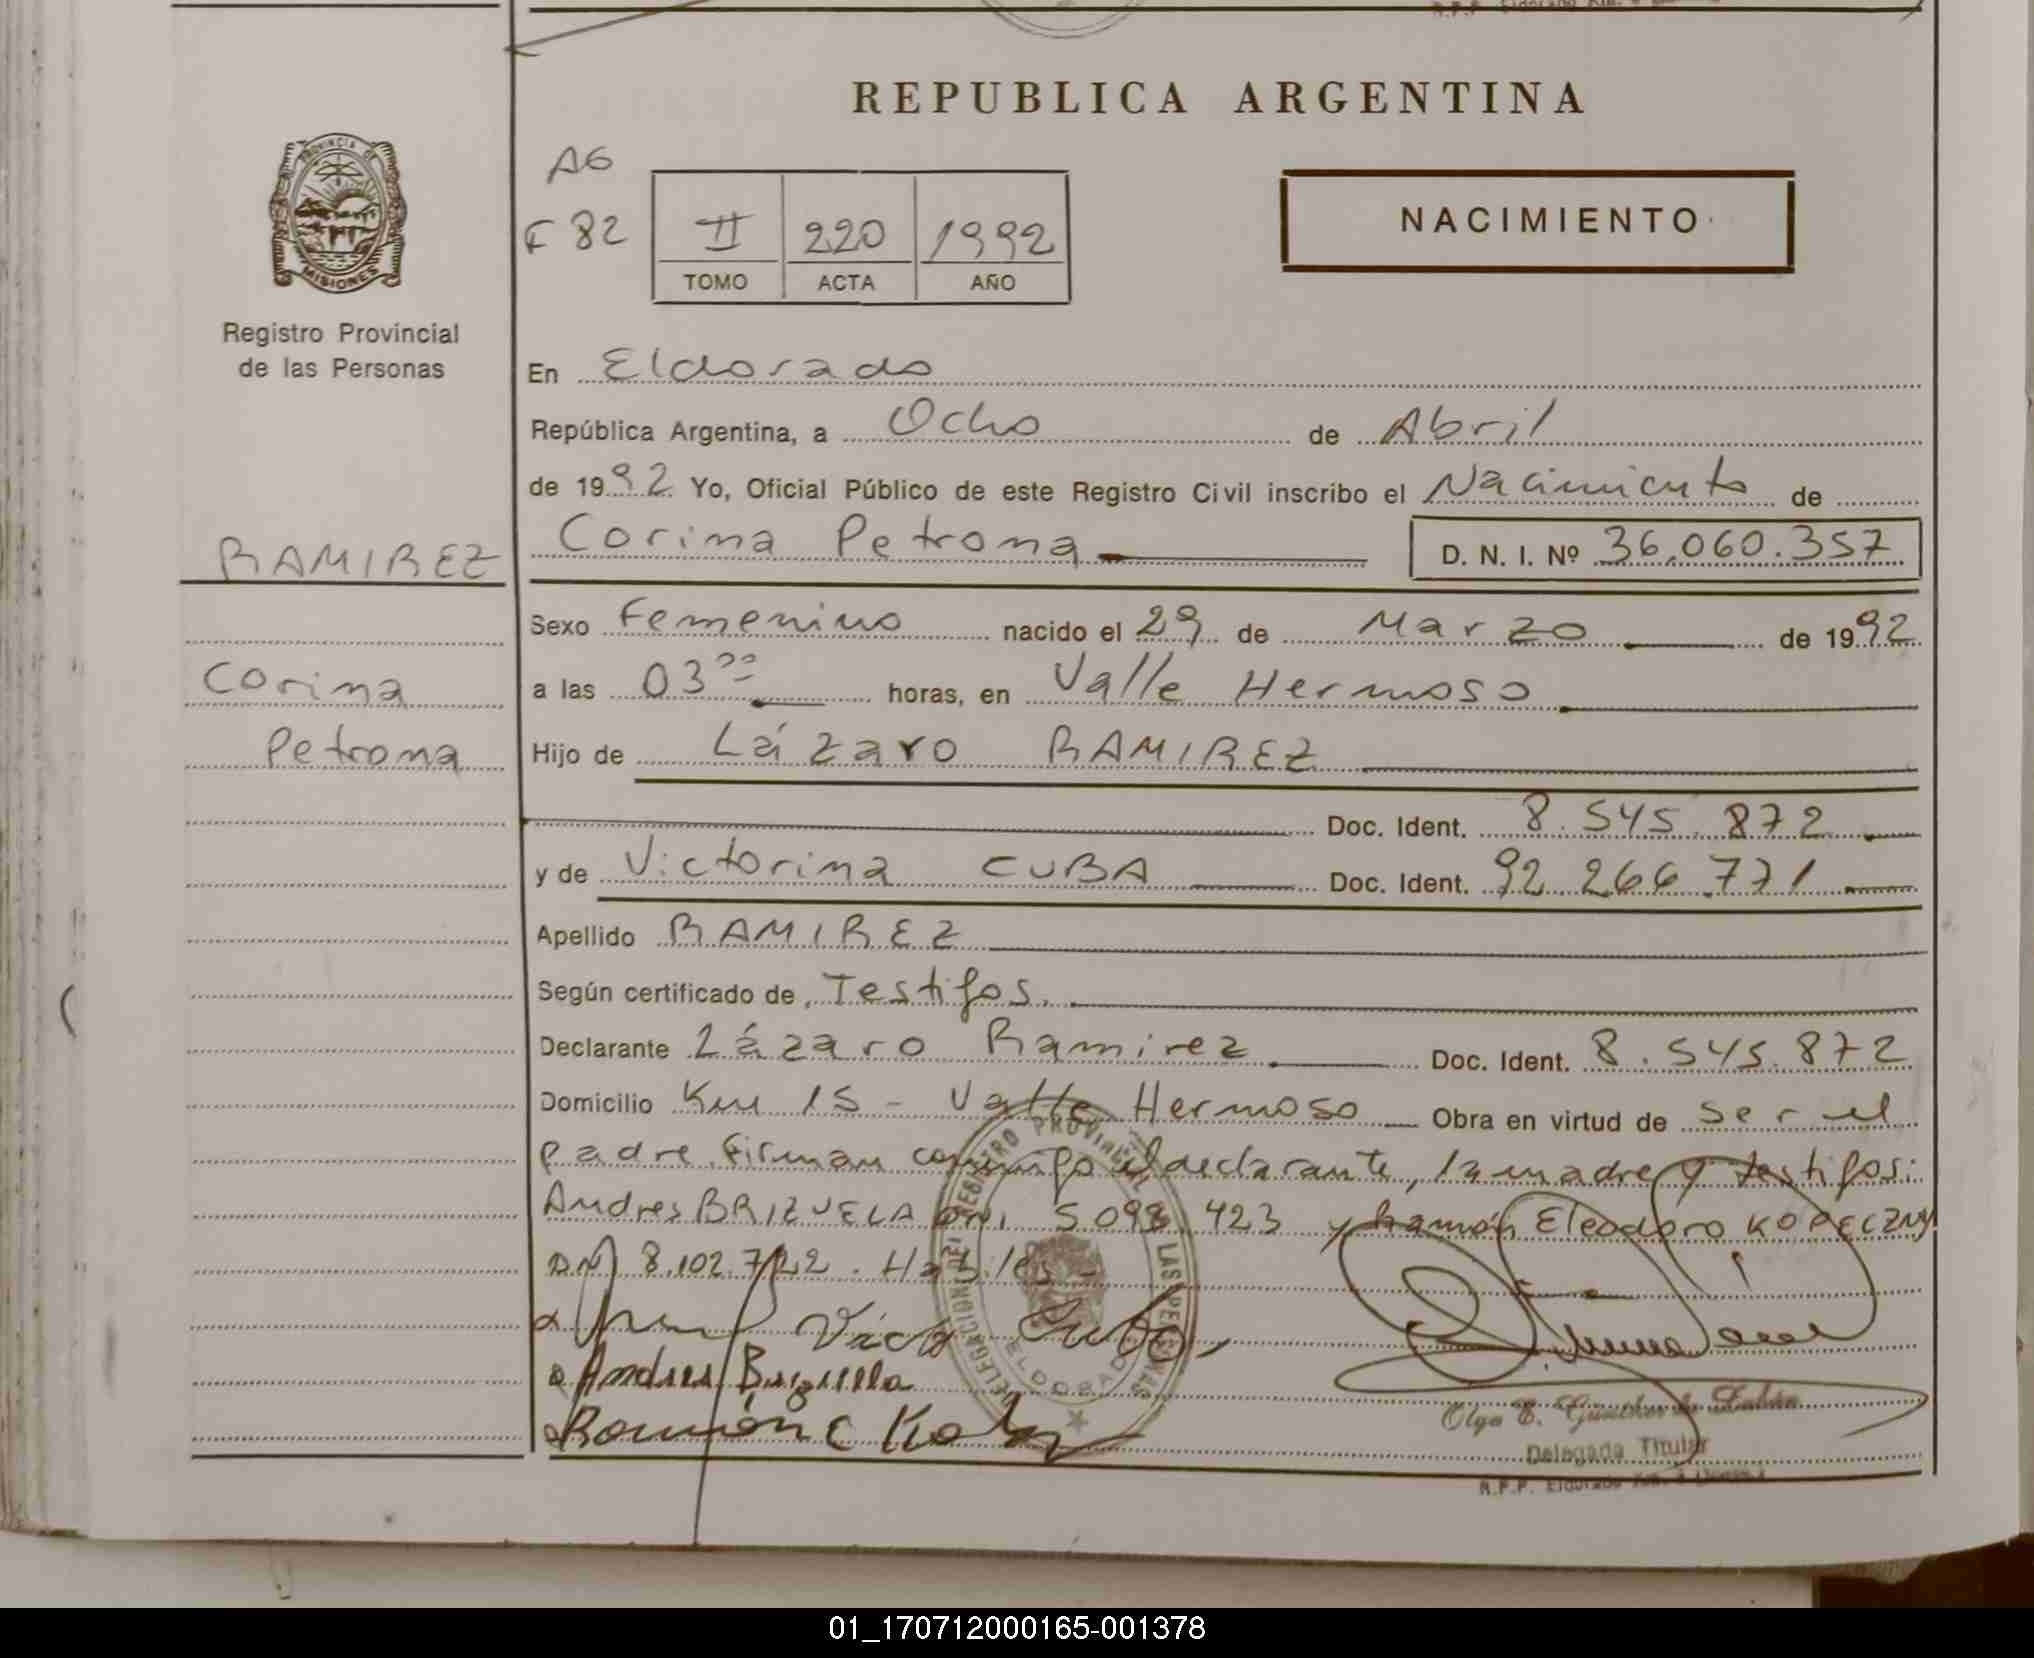 REPUBLICA ARGENTINA
PROVINCIA DE
MISIONES
Registro Provincial
de las Personas
A6
F 82
II 220 1992
TOMO ACTA AÑO
NACIMIENTO
En Eldorado
República Argentina, a Ocho de Abril
de 1992 Yo, Oficial Público de este Registro Civil inscribo el Nacimiento de
RAMIREZ
Corina Petrona D. N. I. Nº 36.060.357
Sexo Femenino nacido el 29 de Marzo de 1992
Corina
a las 03 00 horas, en Valle Hermoso
Petrona
Hijo de Lázaro RAMIREZ
Doc. Ident. 8.545.872
y de Victorina CUBA Doc. Ident. 92.266.771
Apellido RAMIREZ
Según certificado de Testigos.
Declarante Lázaro Ramirez Doc. Ident. 8.545.872
Domicilio Km 15 - Valle Hermoso Obra en virtud de ser el
padre. Firman conmigo el declarante, la madre y testigos:
Andres BRIZUELA DNI 5.098.423 y Ramón Eleodoro KOPECZNY
DNI 8.102.722. Habiles -
Andres Brizuela
Ramón E
DELEGACION DEL REGISTRO PROVINCIAL DE LAS PERSONAS
ELDORADO
Olga E. Günther de
Delegada Titular
R.P.P. Eldorado Km.
01_170712000165-001378